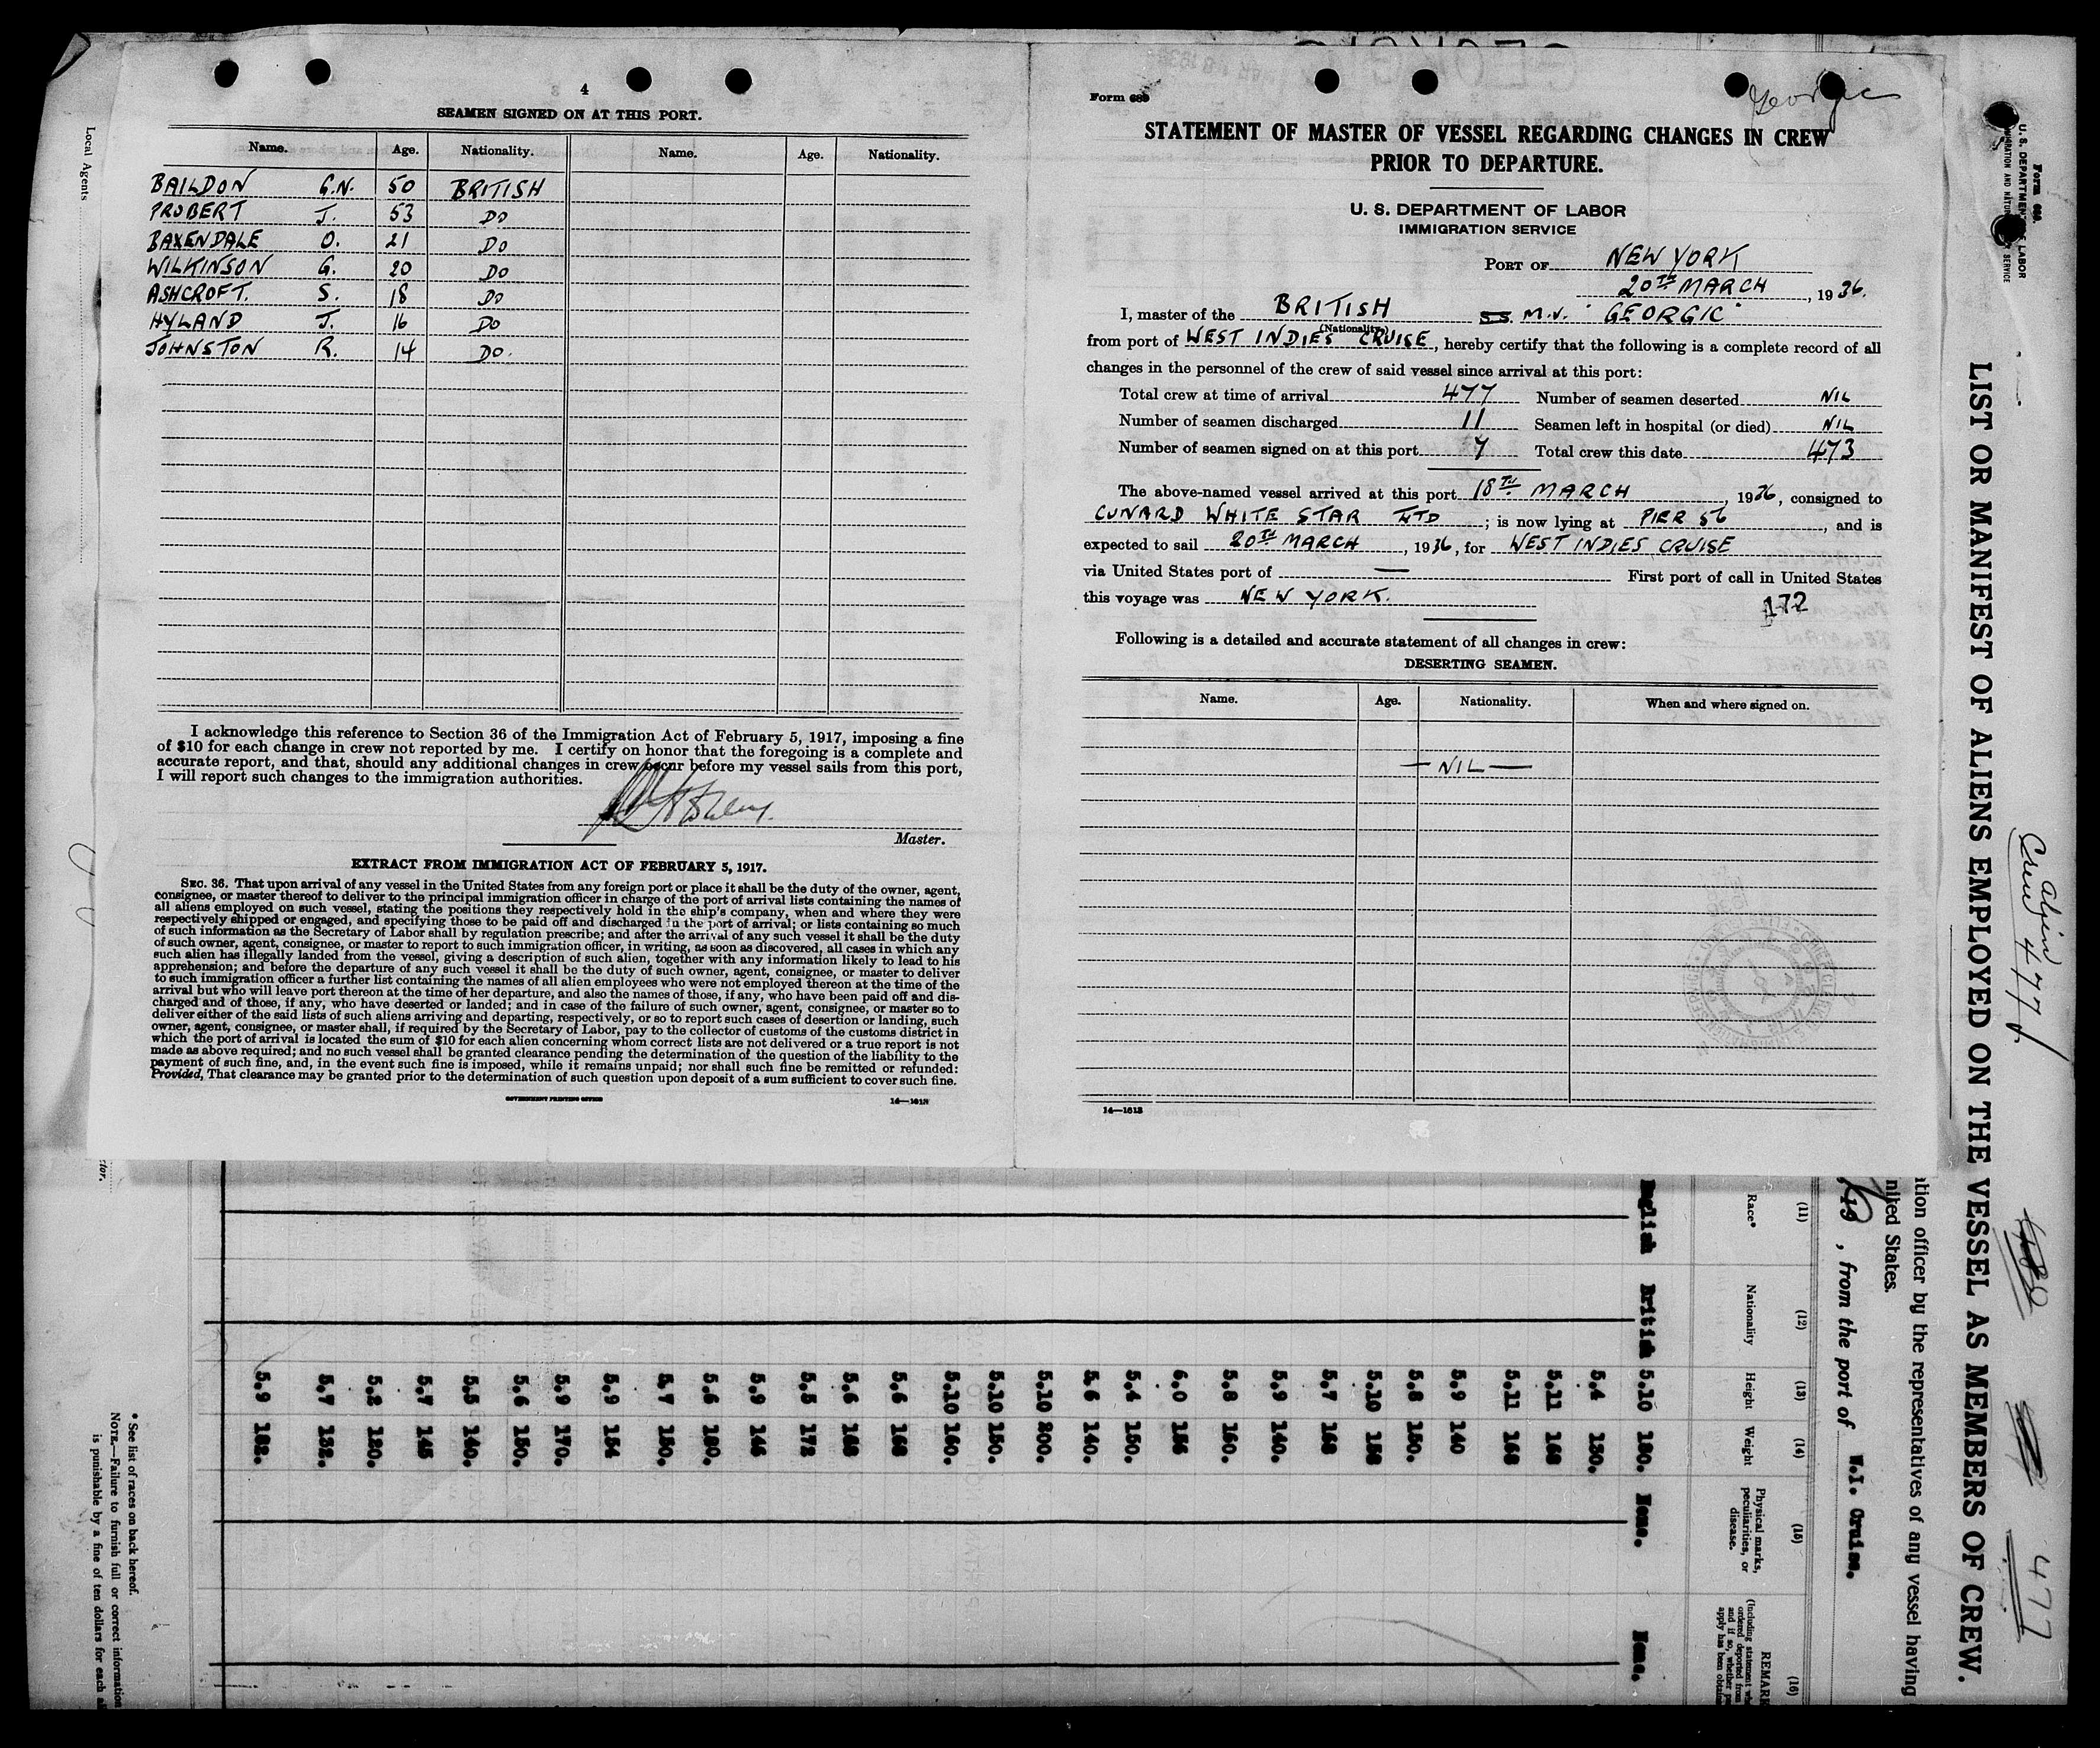 4
SEAMEN SIGNED ON AT THIS PORT.
Name. Age. Nationality. Name. Age. Nationality.
BAILDON G.N. 50 BRITISH
PROBERT J. 53 DO
BAXENDALE O. 21 DO
WILKINSON G. 20 DO
ASHCROFT. S. 18 DO
HYLAND J. 16 DO
JOHNSTON R. 14 DO.
I acknowledge this reference to Section 36 of the Immigration Act of February 5, 1917, imposing a fine
of $10 for each change in crew not reported by me. I certify on honor that the foregoing is a complete and
accurate report, and that, should any additional changes in crew occur before my vessel sails from this port,
I will report such changes to the immigration authorities.
Master.
EXTRACT FROM IMMIGRATION ACT OF FEBRUARY 5, 1917.
SEC. 36. That upon arrival of any vessel in the United States from any foreign port or place it shall be the duty of the owner, agent,
consignee, or master thereof to deliver to the principal immigration officer in charge of the port of arrival lists containing the names of
all aliens employed on such vessel, stating the positions they respectively hold in the ship's company, when and where they were
respectively shipped or engaged, and specifying those to be paid off and discharged in the port of arrival; or lists containing so much
of such information as the Secretary of Labor shall by regulation prescribe; and after the arrival of any such vessel it shall be the duty
of such owner, agent, consignee, or master to report to such immigration officer, in writing, as soon as discovered, all cases in which any
such alien has illegally landed from the vessel, giving a description of such alien, together with any information likely to lead to his
apprehension; and before the departure of any such vessel it shall be the duty of such owner, agent, consignee, or master to deliver
to such immigration officer a further list containing the names of all alien employees who were not employed thereon at the time of the
arrival but who will leave port thereon at the time of her departure, and also the names of those, if any, who have been paid off and dis-
charged and of those, if any, who have deserted or landed; and in case of the failure of such owner, agent, consignee, or master so to
deliver either of the said lists of such aliens arriving and departing, respectively, or so to report such cases of desertion or landing, such
owner, agent, consignee, or master shall, if required by the Secretary of Labor, pay to the collector of customs of the customs district in
which the port of arrival is located the sum of $10 for each alien concerning whom correct lists are not delivered or a true report is not
made as above required; and no such vessel shall be granted clearance pending the determination of the question of the liability to the
payment of such fine, and, in the event such fine is imposed, while it remains unpaid; nor shall such fine be remitted or refunded:
Provided, That clearance may be granted prior to the determination of such question upon deposit of a sum sufficient to cover such fine.
GOVERNMENT PRINTING OFFICE 14—1613
Georgic
Form 689
STATEMENT OF MASTER OF VESSEL REGARDING CHANGES IN CREW
PRIOR TO DEPARTURE.
U. S. DEPARTMENT OF LABOR
IMMIGRATION SERVICE
PORT OF NEW YORK
20TH MARCH, 1936.
I, master of the BRITISH S.S. M.V. "GEORGIC"
(Nationality)
from port of WEST INDIES CRUISE, hereby certify that the following is a complete record of all
changes in the personnel of the crew of said vessel since arrival at this port:
Total crew at time of arrival 477 Number of seamen deserted NIL
Number of seamen discharged 11 Seamen left in hospital (or died) NIL
Number of seamen signed on at this port 7 Total crew this date 473
The above-named vessel arrived at this port 18TH MARCH, 1936, consigned to
CUNARD WHITE STAR LTD; is now lying at PIER 56, and is
expected to sail 20TH MARCH, 1936, for WEST INDIES CRUISE
via United States port of — First port of call in United States
this voyage was NEW YORK.
172
Following is a detailed and accurate statement of all changes in crew:
DESERTING SEAMEN.
Name. Age. Nationality. When and where signed on.
— NIL —
14—1613
Local Agents
Form 689
U. S. DEPARTMENT OF LABOR
LIST OR MANIFEST OF ALIENS EMPLOYED ON THE VESSEL AS MEMBERS OF CREW.
Aliens
Crew 477
477
ation officer by the representatives of any vessel having
nited States.
, from the port of W.I. Cruise.
(11) (12) (13) (14) (15) (16)
Race* Nationality Height Weight Physical marks, peculiarities, or disease. REMARK
English British 5.10 180. None. None.
5.4 130.
5.11 168
5.11 168
5.9 140
5.8 150.
5.10 158
5.7 168
5.9 140.
5.8 160.
6.0 156
5.4 150.
5.6 140.
5.10 200.
5.10 150.
5.10 160.
5.6 168
5.6 168
5.5 172
5.9 146
5.6 180.
5.7 150.
5.9 154
5.9 170.
5.6 150.
5.5 140.
5.7 145
5.2 120.
5.7 132.
5.9 162.
* See list of races on back hereof.
NOTE.—Failure to furnish full or correct information
is punishable by a fine of ten dollars for each al